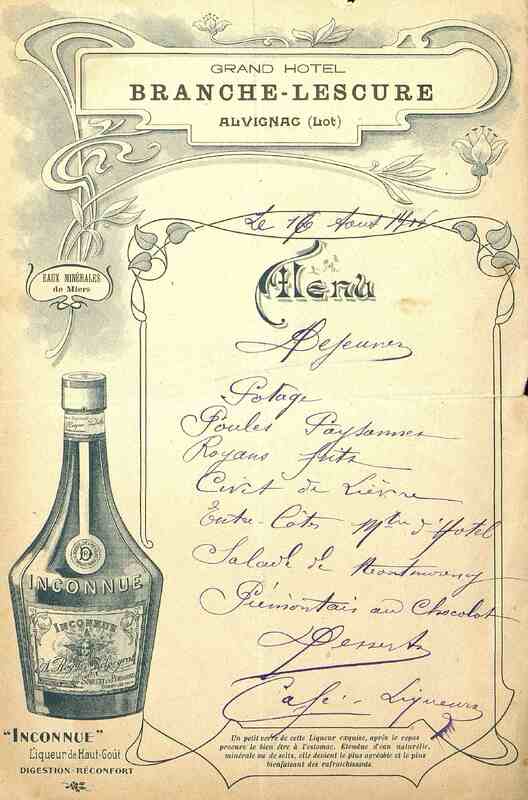 GRAND HOTEL
BRANCHE-LESCURE
ALVIGNAC (Lot)
EAUX MINÉRALES
de Miers
Le 16 Aout
Menu
Dejeuner
Potage
Poules Paysannes
Royans frits
Civet de Lièvre
Entre-Côtes Mtre d'Hotel
Salade de Montmorency
Piémontais au Chocolat
Desserts
Café - Liqueurs
INCONNUE
INCONNUE
"INCONNUE"
Liqueur de Haut-Goût
DIGESTION-RÉCONFORT
Un petit verre de cette Liqueur exquise, après le repas
procure le bien être à l'estomac. Etendue d'eau naturelle,
minérale ou de seltz, elle devient le plus agréable et le plus
bienfaisant des rafraichissants.